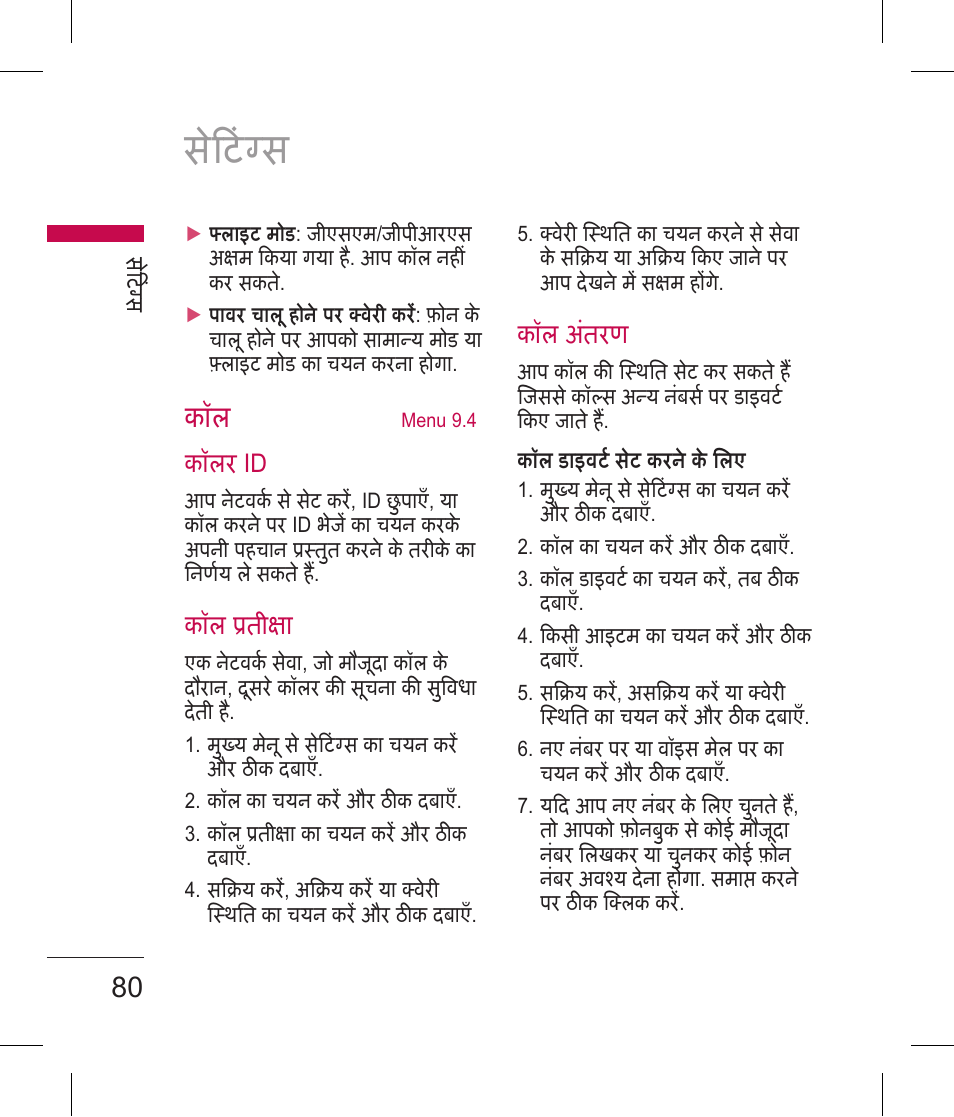 सेटिंग्स
सेटिंग्स
▶ फ्लाइट मोड: जीएसएम/जीपीआरएस
अक्षम किया गया है. आप कॉल नहीं
कर सकते.
▶ पावर चालू होने पर क्वेरी करें: फ़ोन के
चालू होने पर आपको सामान्य मोड या
फ़्लाइट मोड का चयन करना होगा.
कॉल Menu 9.4
कॉलर ID
आप नेटवर्क से सेट करें, ID छुपाएँ, या
कॉल करने पर ID भेजें का चयन करके
अपनी पहचान प्रस्तुत करने के तरीके का
निर्णय ले सकते हैं.
कॉल प्रतीक्षा
एक नेटवर्क सेवा, जो मौजूदा कॉल के
दौरान, दूसरे कॉलर की सूचना की सुविधा
देती है.
1. मुख्य मेनू से सेटिंग्स का चयन करें
और ठीक दबाएँ.
2. कॉल का चयन करें और ठीक दबाएँ.
3. कॉल प्रतीक्षा का चयन करें और ठीक
दबाएँ.
4. सक्रिय करें, अक्रिय करें या क्वेरी
स्थिति का चयन करें और ठीक दबाएँ.
5. क्वेरी स्थिति का चयन करने से सेवा
के सक्रिय या अक्रिय किए जाने पर
आप देखने में सक्षम होंगे.
कॉल अंतरण
आप कॉल की स्थिति सेट कर सकते हैं
जिससे कॉल्स अन्य नंबर्स पर डाइवर्ट
किए जाते हैं.
कॉल डाइवर्ट सेट करने के लिए
1. मुख्य मेनू से सेटिंग्स का चयन करें
और ठीक दबाएँ.
2. कॉल का चयन करें और ठीक दबाएँ.
3. कॉल डाइवर्ट का चयन करें, तब ठीक
दबाएँ.
4. किसी आइटम का चयन करें और ठीक
दबाएँ.
5. सक्रिय करें, असक्रिय करें या क्वेरी
स्थिति का चयन करें और ठीक दबाएँ.
6. नए नंबर पर या वॉइस मेल पर का
चयन करें और ठीक दबाएँ.
7. यदि आप नए नंबर के लिए चुनते हैं,
तो आपको फ़ोनबुक से कोई मौजूदा
नंबर लिखकर या चुनकर कोई फ़ोन
नंबर अवश्य देना होगा. समाप्त करने
पर ठीक क्लिक करें.
80